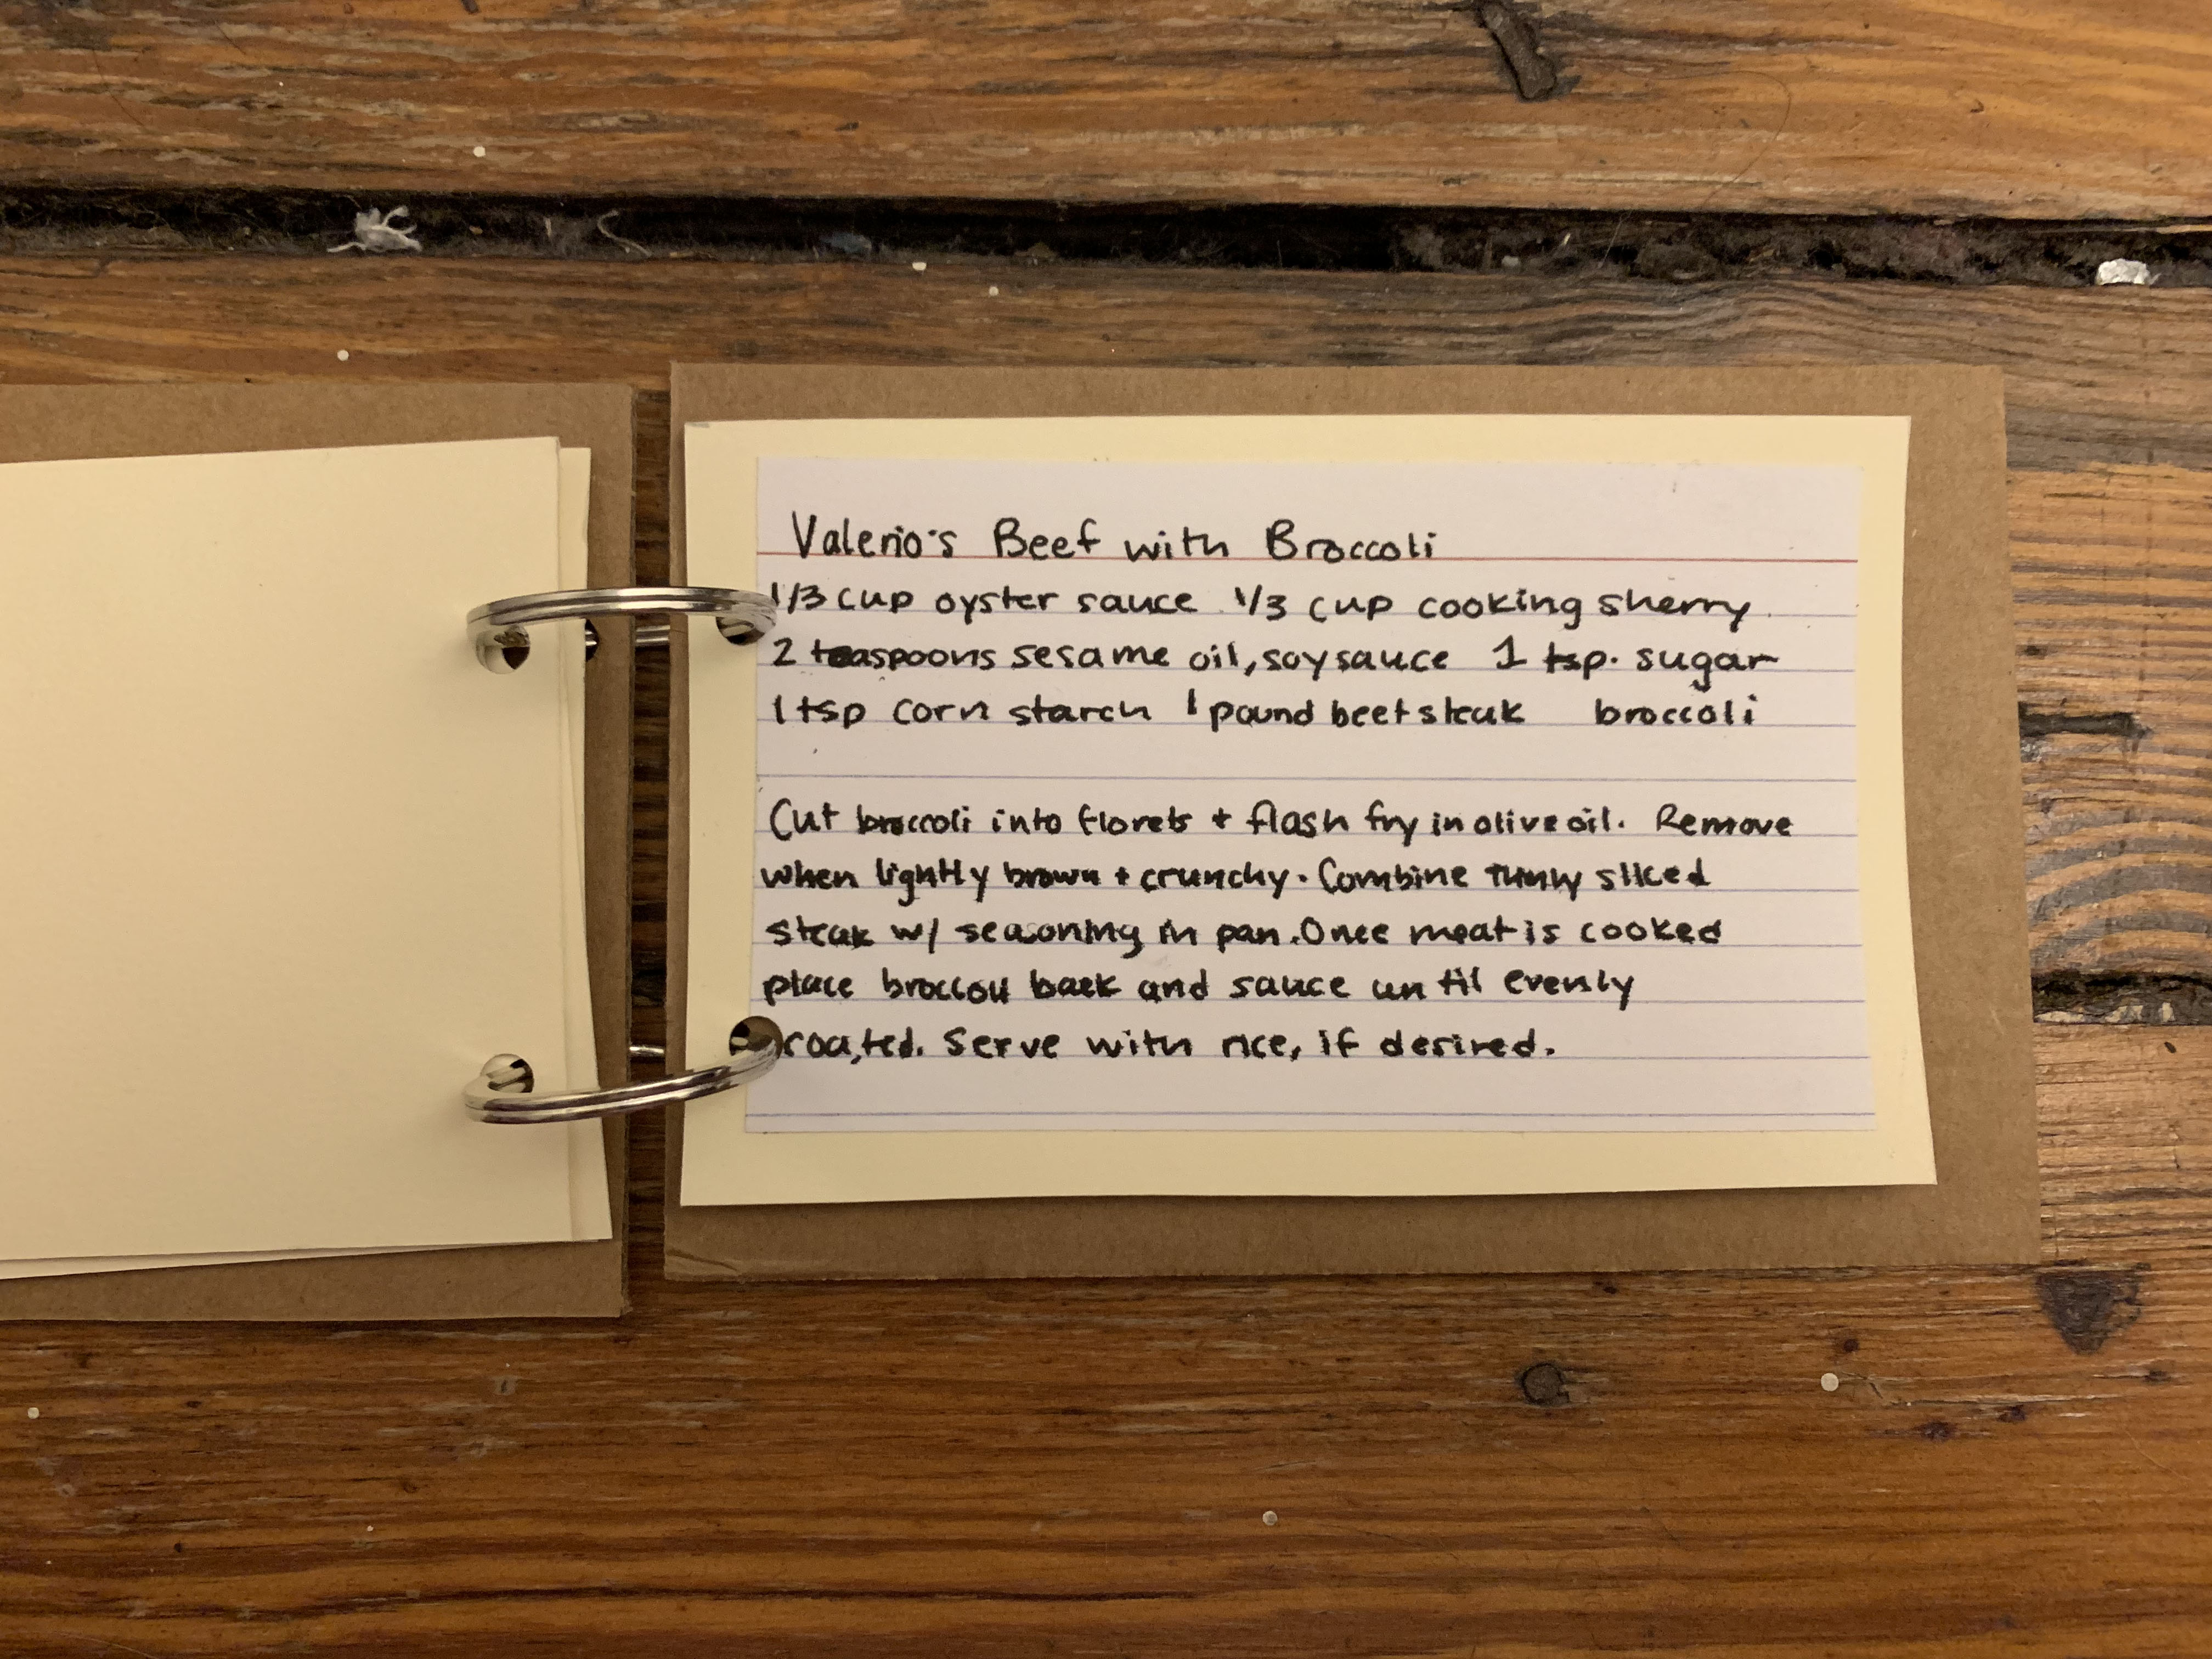 Valerio's Beef with Broccoli
1/3 cup oyster sauce 1/3 cup cooking sherry
2 teaspoons sesame oil, soy sauce 1 tsp. sugar
1 tsp corn starch 1 pound beef steak broccoli
Cut broccoli into florets + flash fry in olive oil. Remove
when lightly brown + crunchy. Combine thinly sliced
steak w/ seasoning in pan. Once meat is cooked
place broccoli back and sauce until evenly
coated. Serve with rice, if desired.